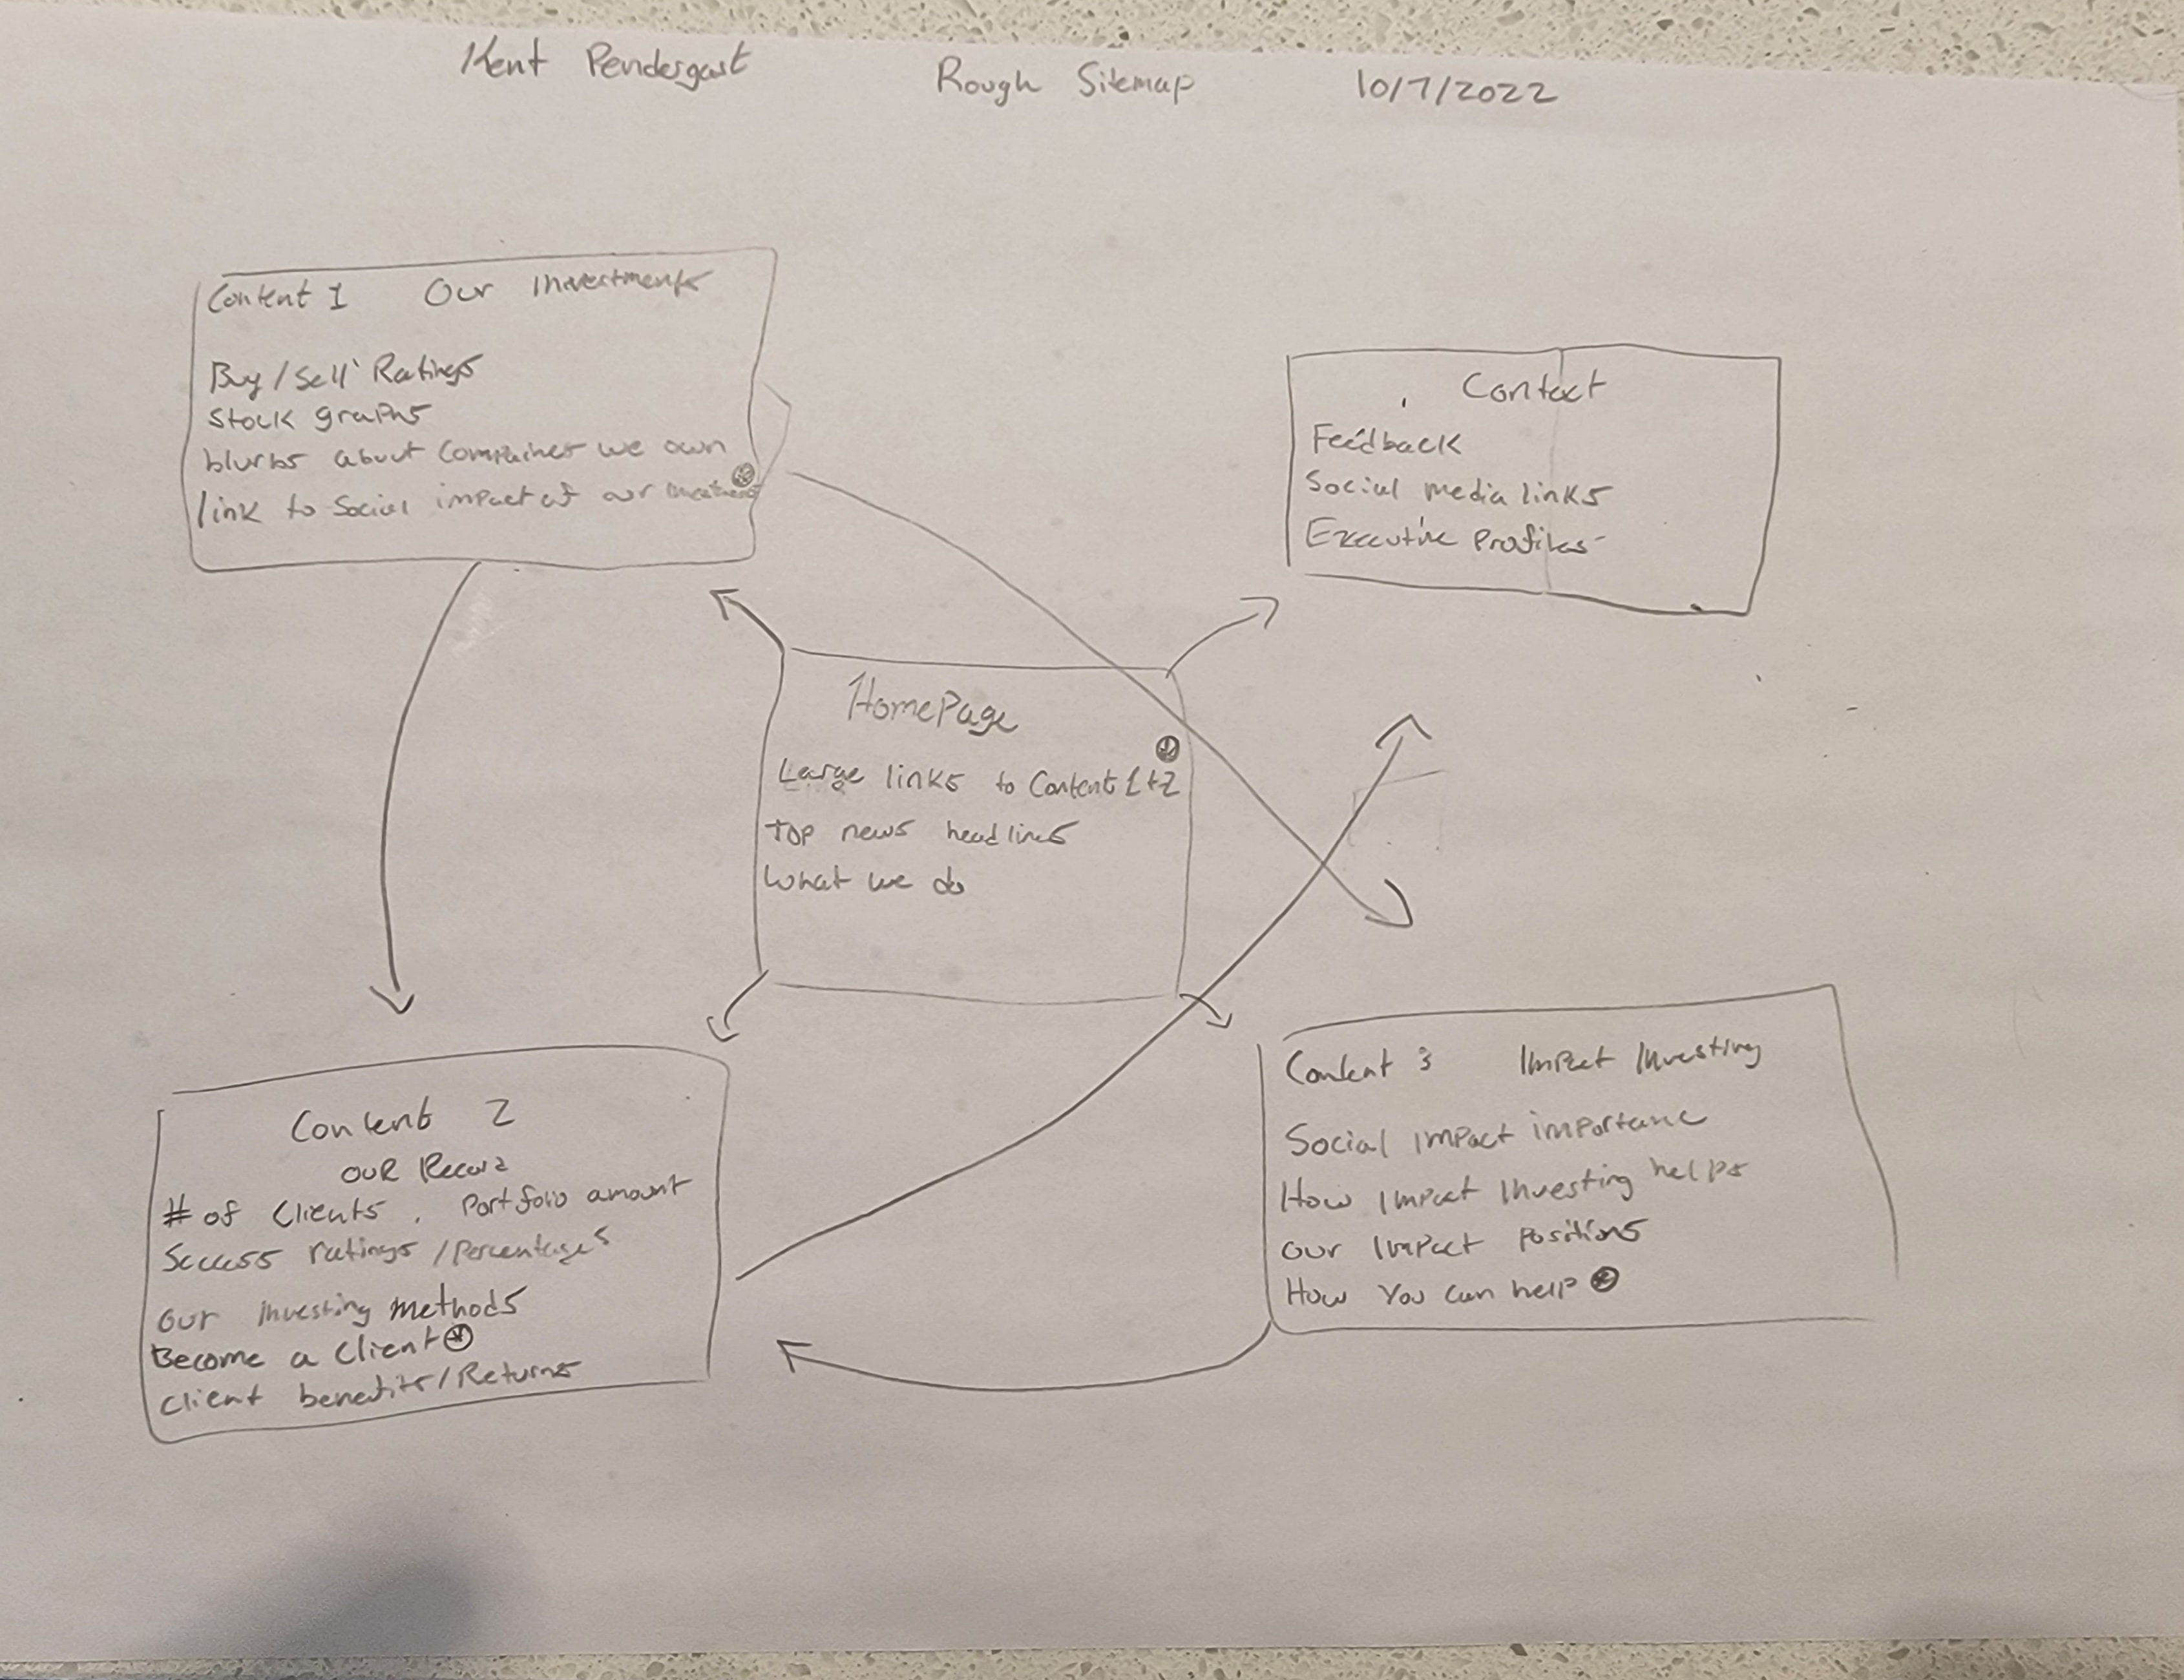 Kent Pendergast Rough Sitemap 10/7/2022
Content 1 Our Investments
Buy/Sell Ratings
Stock graphs
blurbs about Compaines we own
link to Social impact of our
Contact
Feedback
Social media links
Executive Profiles
HomePage
Large links to Content 1+2
Top news headlines
What we do
Content 2
OUR Record
# of Clients, Portfolio amount
Success ratings/Percentages
Our Investing methods
Become a Client
Client benefits/Returns
Content 3 Impact Investing
Social Impact importance
How Impact Investing helps
Our Impact Positions
How You can help